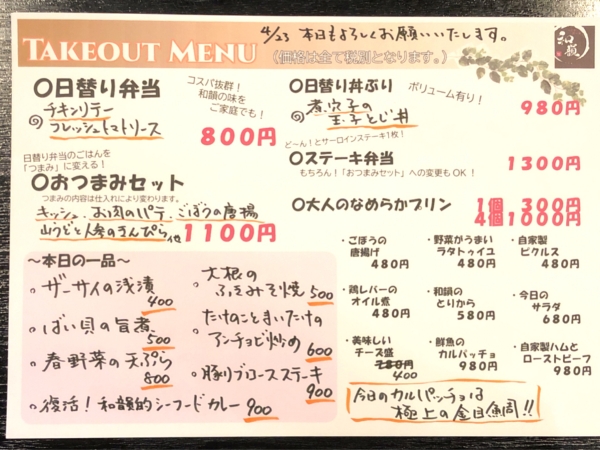 4/23 本日もよろしくお願いいたします。
TAKEOUT MENU
(価格は全て税別となります。)
和韻
〇日替り弁当
コスパ抜群!
和韻の味を
ご家庭でも!
◎チキンソテー
フレッシュトマトソース
800円
日替り弁当のごはんを
「つまみ」に変える!
〇おつまみセット
つまみの内容は仕入れにより変わります。
キッシュ、お肉のパテ、ごぼうの唐揚
山うどと人参のきんぴら 他
1100円
〇日替り丼ぶり
ボリューム有り!
◎煮穴子の
玉子とじ丼
980円
ど〜ん!とサーロインステーキ1枚!
〇ステーキ弁当
1300円
もちろん!「おつまみセット」への変更もOK!
〇大人のなめらかプリン
1個 300円
4個1000円
・ごぼうの
唐揚げ
480円
・野菜がうまい
ラタトゥイユ
480円
・自家製
ピクルス
480円
・鶏レバーの
オイル煮
480円
・和韻の
とりから
580円
・今日の
サラダ
680円
・美味しい
チーズ盛
780円
400
・鮮魚の
カルパッチョ
980円
・自家製ハムと
ローストビーフ
980円
〜本日の一品〜
。ザーサイの浅漬
400
。ばい貝の旨煮
500
。春野菜の天ぷら
800
。復活!和韻的シーフードカレー 900
。大根の
ふきみそ焼 500
。たけのことまいたけの
アンチョビ炒め
600
。豚リブロースステーキ
900
今日のカルパッチョは
極上の金目鯛!!